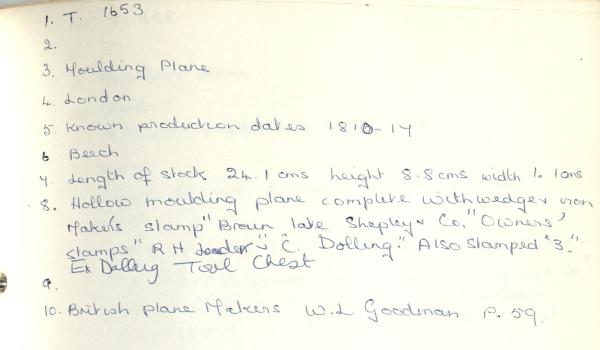 1. T. 1653
2.
3. Moulding Plane
4. London
5. Known production dates 1810-14
6 Beech
7. Length of stock 24.1 cms height 8.8cms width 1.1cms
8. Hollow moulding plane complete with wedge & iron
Makers stamp "Broun late Shepley & Co." Owners'
stamps "R H & "C. Dolling." Also stamped "3."
Ex Dolling Tool Chest
9.
10. British Plane Makers W.L Goodman P. 59.